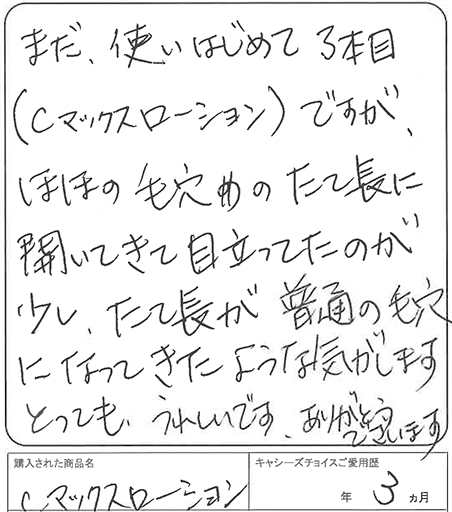 まだ、使いはじめて3本目
(Cマックスローション)ですが、
ほほの毛穴のたて長に
開いてきて目立ってたのが
少し、たて長が普通の毛穴
になってきたような気がします
とっても、うれしいです、ありがとう
ございます
購入された商品名
キャシーズチョイスご愛用歴
Cマックスローション
年 3 ヵ月